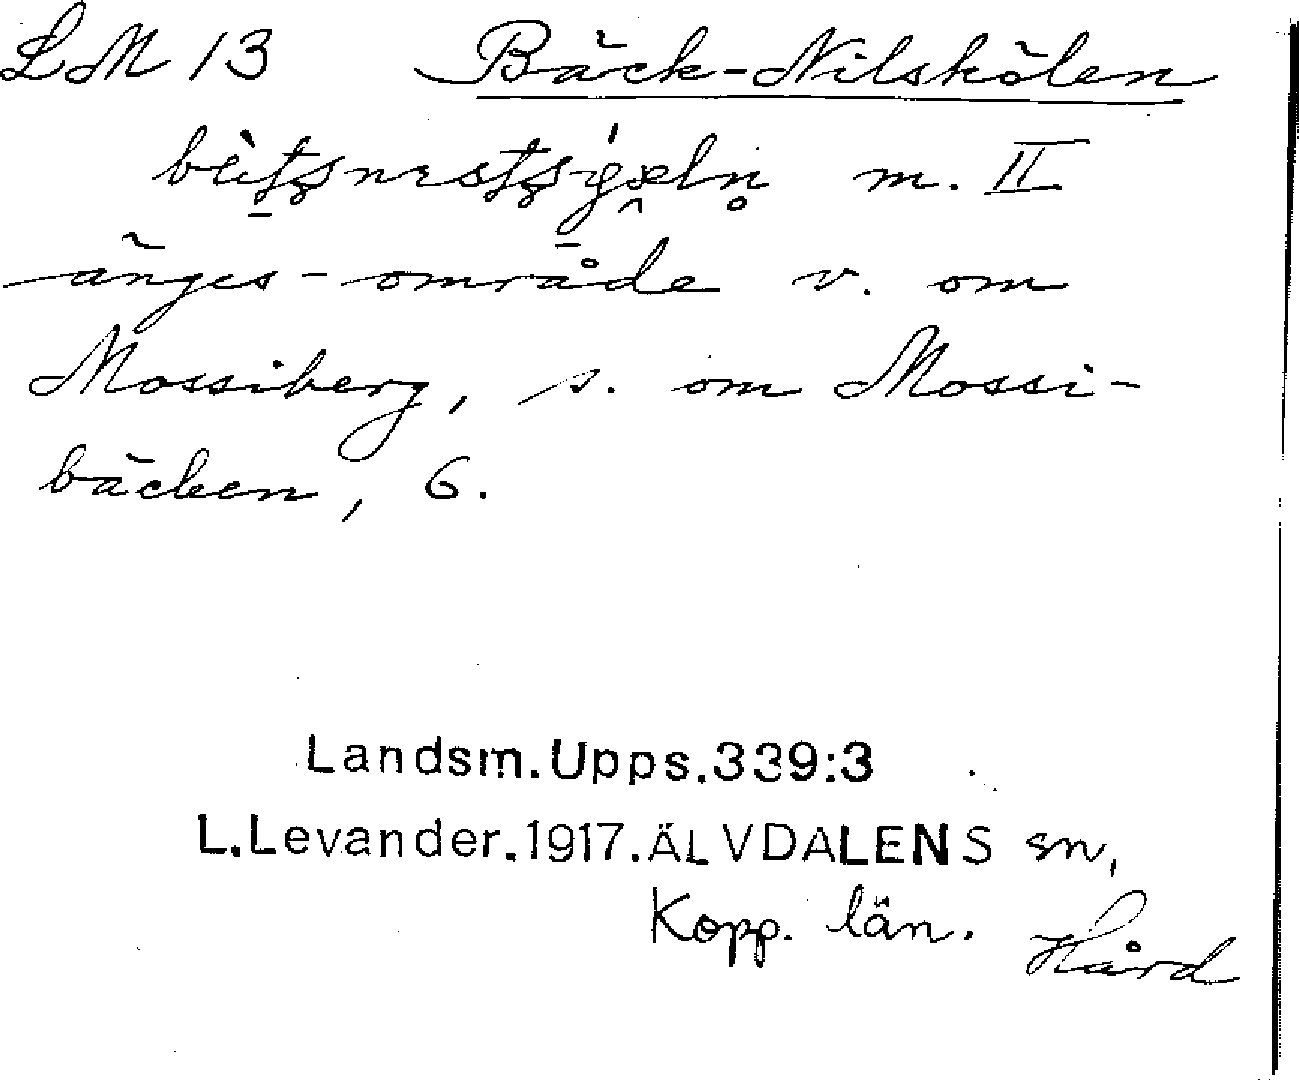 LM 13 Bäck-Nilskölen
m. II
änges-område v. om
Mossiberg, s. om Mossi-
bäcken, 6.
Landsm.Upps.339:3
L.Levander.1917.ÄLVDALENS sn,
Kopp. län. Hård